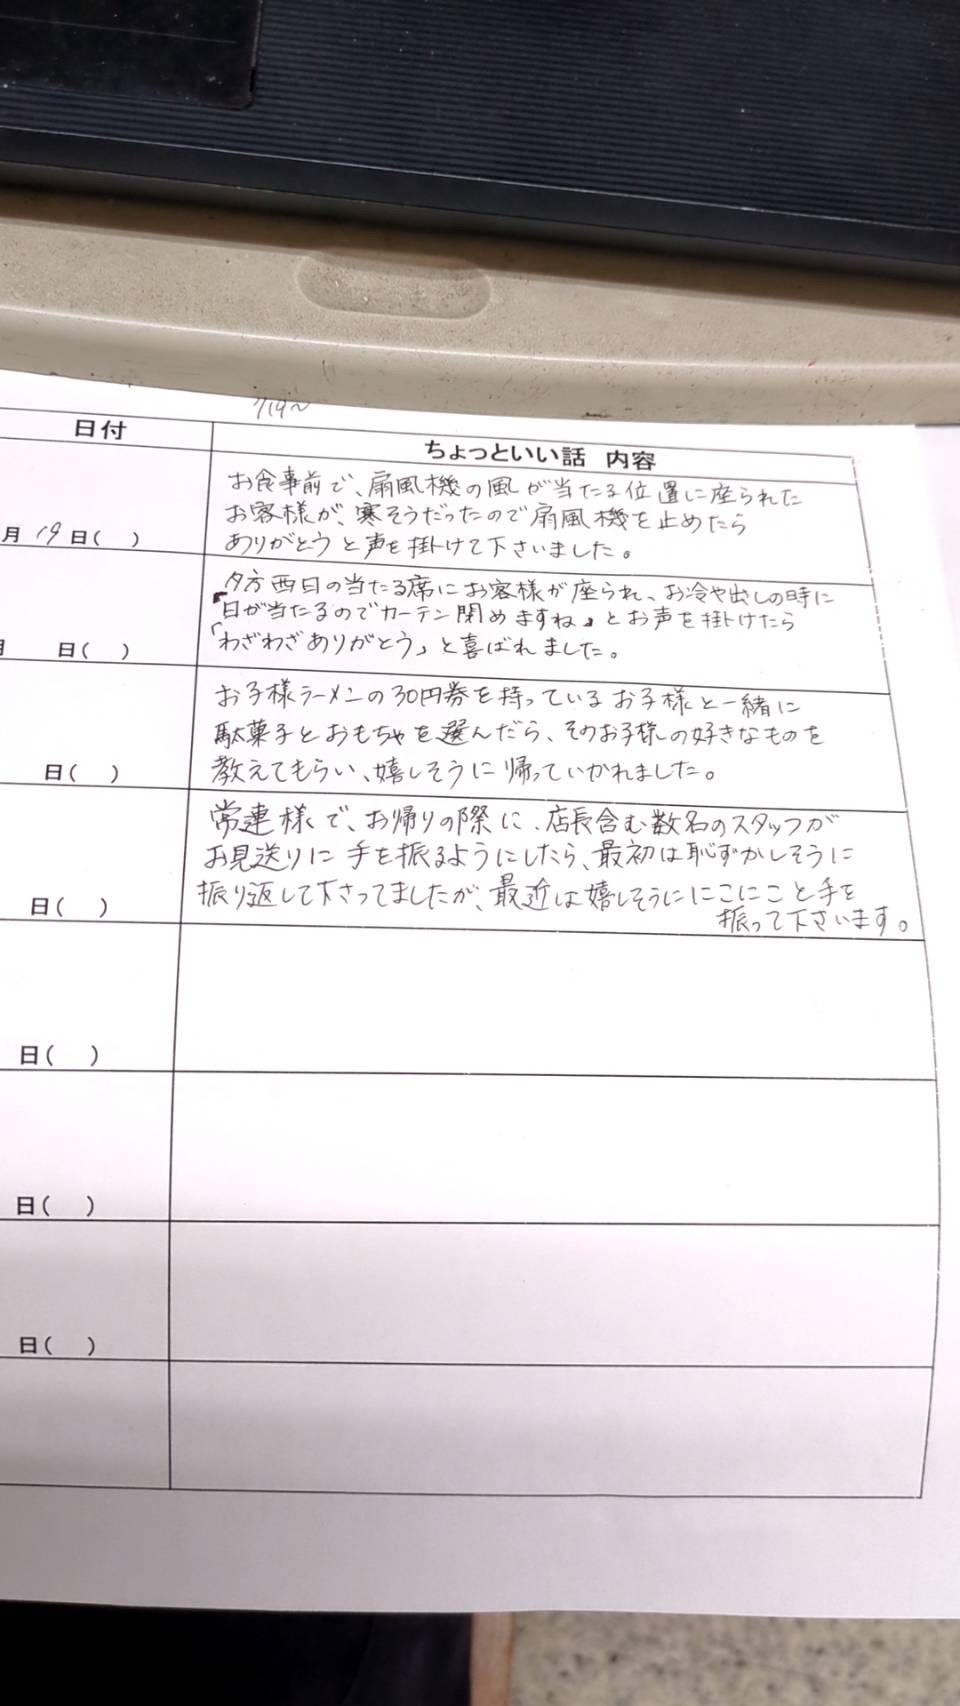 7/19～
日付
ちょっといい話 内容
月 19 日( )
お食事前で、扇風機の風が当たる位置に座られた
お客様が、寒そうだったので扇風機を止めたら
ありがとうと声を掛けて下さいました。
日( )
夕方西日の当たる席にお客様が座られ、お冷や出しの時に
「日が当たるのでカーテン閉めますね」とお声を掛けたら
「わざわざありがとう」と喜ばれました。
日( )
お子様ラーメンの30円券を持っているお子様と一緒に
駄菓子とおもちゃを選んだら、そのお子様の好きなものを
教えてもらい、嬉しそうに帰っていかれました。
日( )
常連様で、お帰りの際に、店長含む数名のスタッフが
お見送りに手を振るようにしたら、最初は恥ずかしそうに
振り返して下さってましたが、最近は嬉しそうににこにこと手を
振って下さいます。
日( )
日( )
日( )